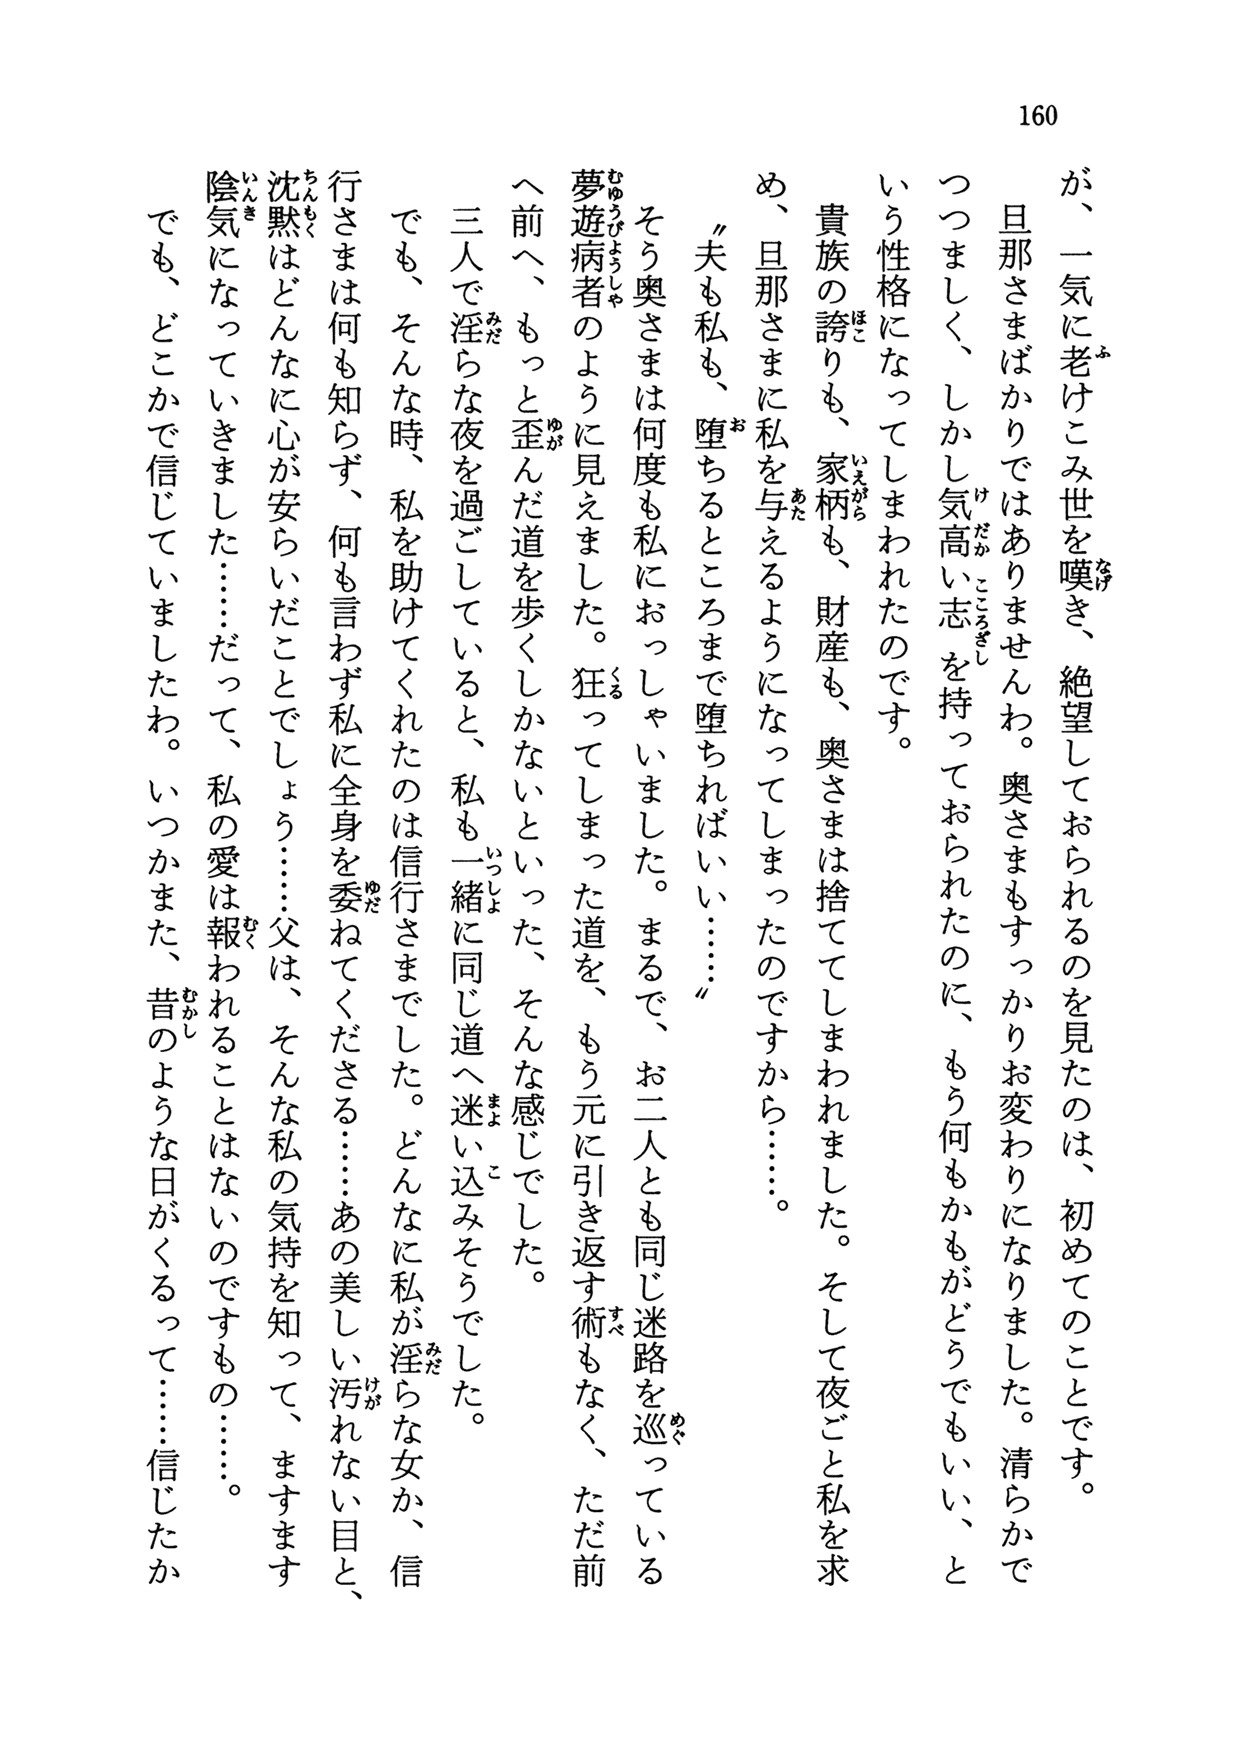 160
が、一気に老けこみ世を嘆き、絶望しておられるのを見たのは、初めてのことです。
旦那さまばかりではありませんわ。奥さまもすっかりお変わりになりました。清らかで
つつましく、しかし気高い志を持っておられたのに、もう何もかもがどうでもいい、と
いう性格になってしまわれたのです。
貴族の誇りも、家柄も、財産も、奥さまは捨ててしまわれました。そして夜ごと私を求
め、旦那さまに私を与えるようになってしまったのですから……。
〝夫も私も、堕ちるところまで堕ちればいい……〟
そう奥さまは何度も私におっしゃいました。まるで、お二人とも同じ迷路を巡っている
夢遊病者のように見えました。狂ってしまった道を、もう元に引き返す術もなく、ただ前
へ前へ、もっと歪んだ道を歩くしかないといった、そんな感じでした。
三人で淫らな夜を過ごしていると、私も一緒に同じ道へ迷い込みそうでした。
でも、そんな時、私を助けてくれたのは信行さまでした。どんなに私が淫らな女か、信
行さまは何も知らず、何も言わず私に全身を委ねてくださる……あの美しい汚れない目と、
沈黙はどんなに心が安らいだことでしょう……父は、そんな私の気持を知って、ますます
陰気になっていきました……だって、私の愛は報われることはないのですもの……。
でも、どこかで信じていましたわ。いつかまた、昔のような日がくるって……信じたか